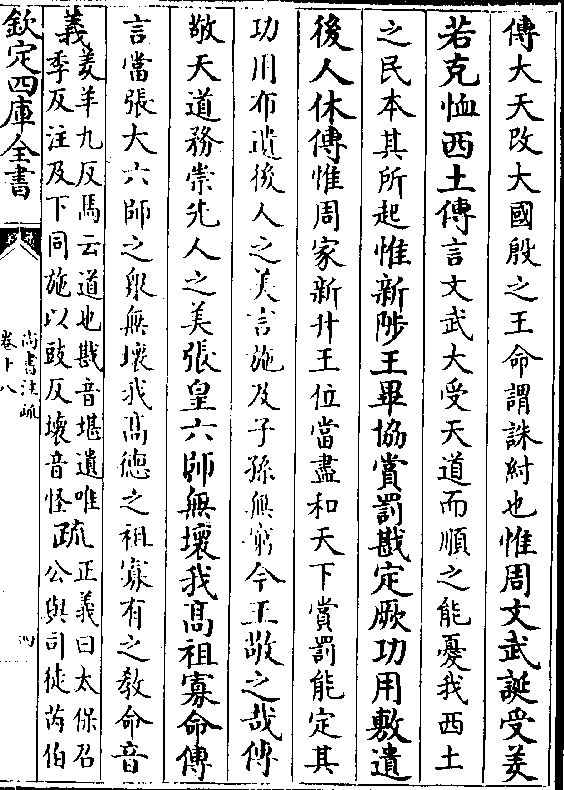 傳大天改大國殷之王命謂誅紂也惟周文武誕受羑
若克恤西土傳言文武大受天道而順之能憂我西土
之民本其所起惟新陟王畢協賞罰戡定厥功用敷遺
後人休傳惟周家新升王位當盡和天下賞罰能定其
功用布遺後人之美言施及子孫無窮今王敬之哉傳
敬天道務崇先人之美張皇六師無壞我髙祖寡命傳
言當張大六師之衆無壞我髙德之祖寡有之教命音
義羑羊九反馬云道也戡音堪遺唯
季反注及下同施以豉反壞音怪疏正義曰太保召
公與司徒芮伯
欽定四庫全書
尚書注疏
卷十八
四